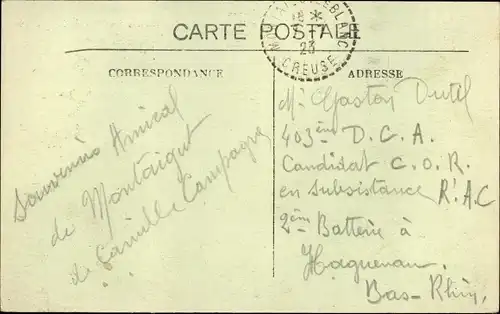 CARTE POSTALE
CORRESPONDANCE
Souvenir Amical
de Montaigut
de Camille Campagne
ADRESSE
Mr Gaston Dutel
403ème D. C. A.
Candidat C. O. R.
en Subsistance R. A. C
2ème Batterie à
Haguenau.
Bas-Rhin.
23
CREUSE